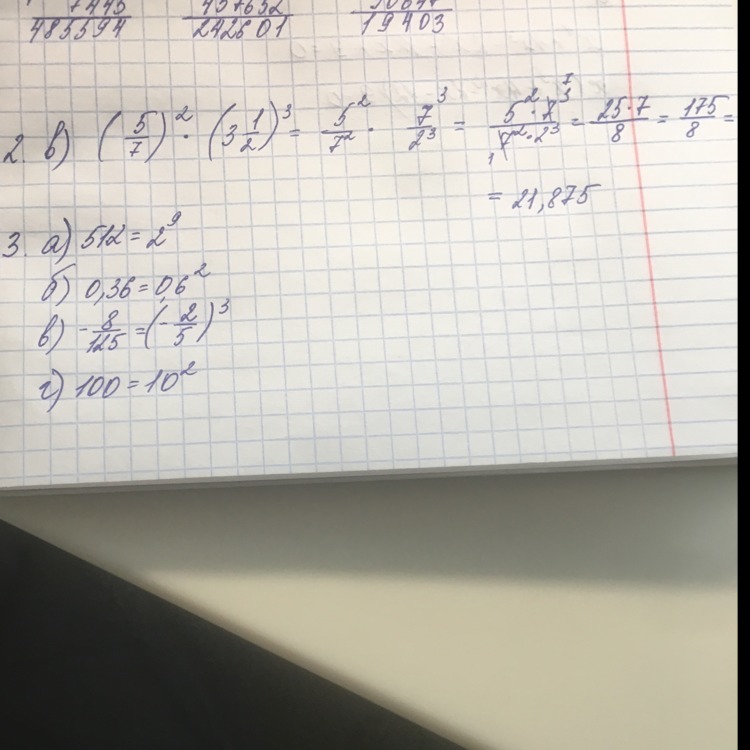 485594 242601 19403
2. в) (5/7)² · (3 1/2)³ = 5²/7² · 7³/2³ = 5² · 7³/7² · 2³ = 25·7/8 = 175/8 =
= 21,875
3. а) 512 = 2⁹
б) 0,36 = 0,6²
в) -8/125 = (-2/5)³
г) 100 = 10²